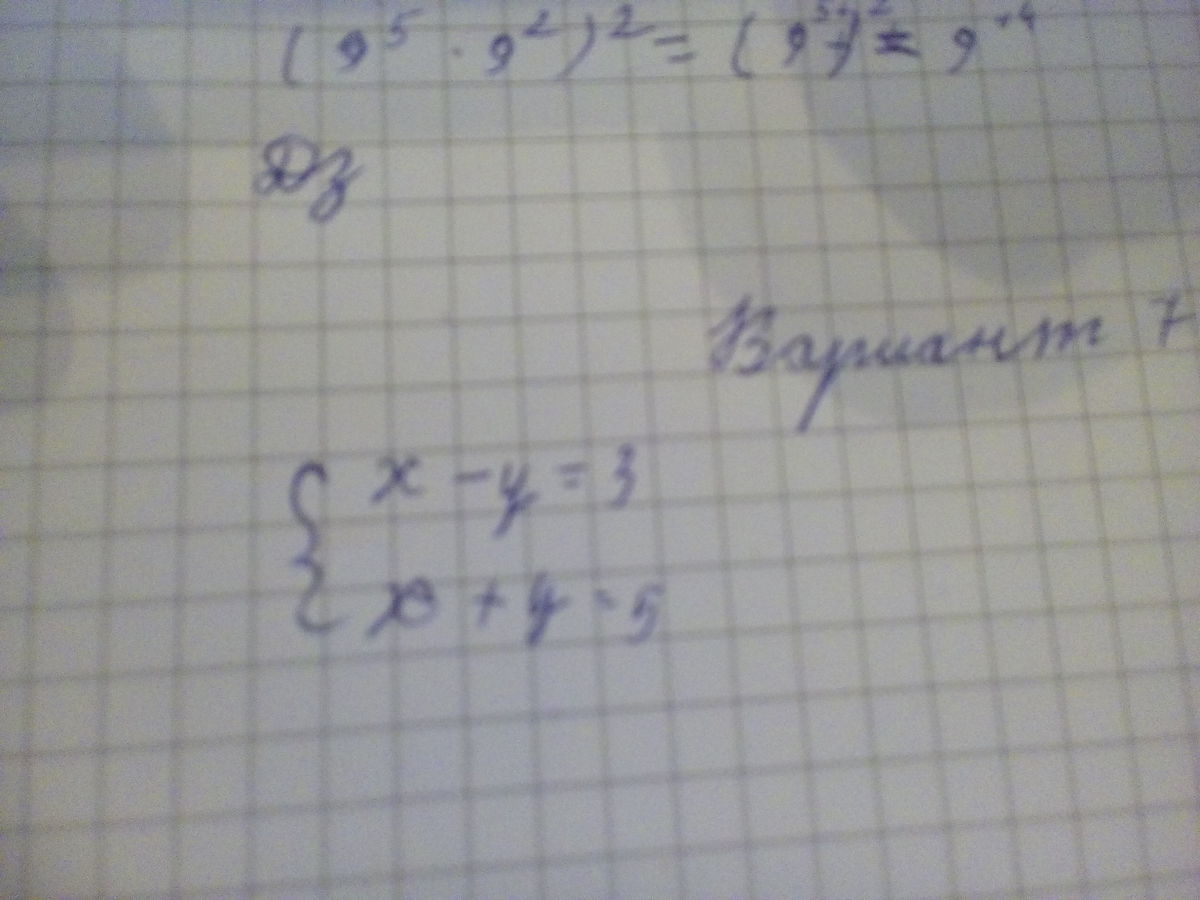 (9⁵ · 9²)² = (9⁵⁺)² = 9¹⁴
Дз
Вариант 7
x - y = 3
x + y = 5